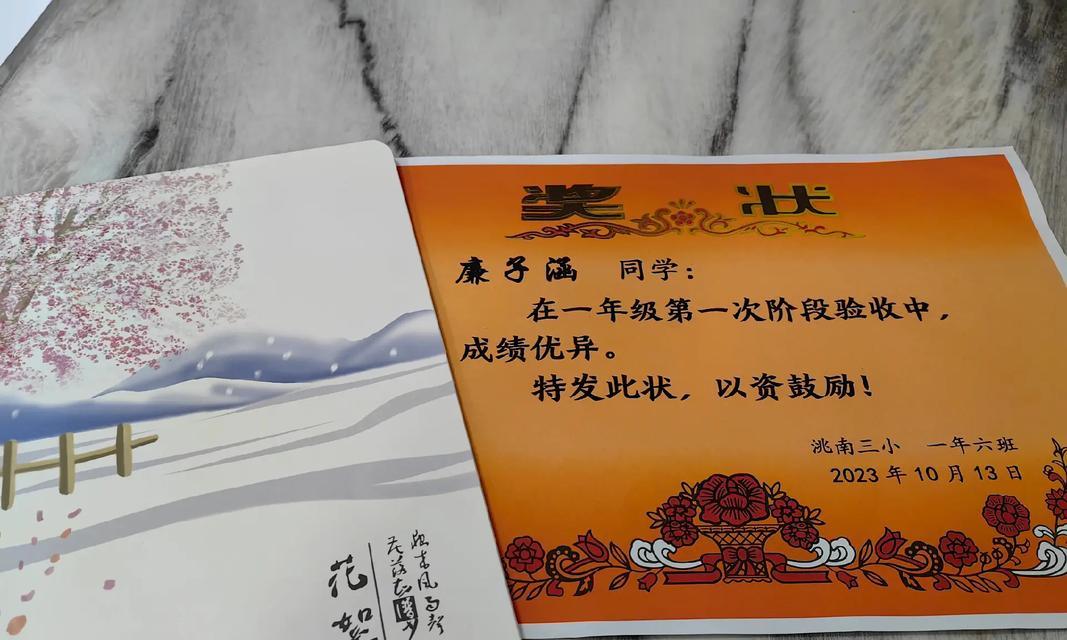 奖 状
廉子涵 同学：
在一年级第一次阶段验收中，
成绩优异。
特发此状，以资鼓励！
洮南三小 一年六班
2023年10月13日
花如